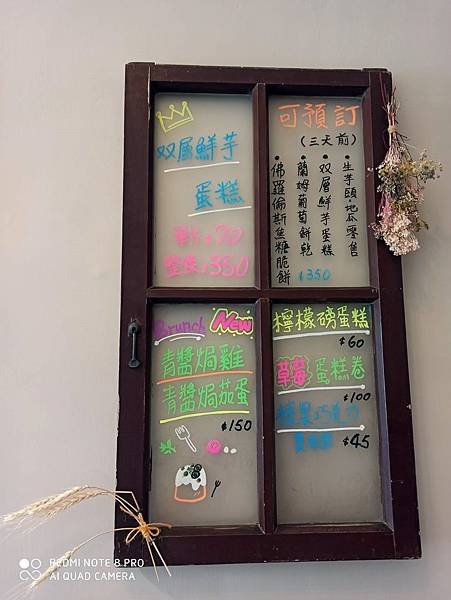 双層鮮芋
蛋糕
單片$90
整條$350
可預訂
(三天前)
•生芋頭、地瓜零售
•双層鮮芋蛋糕$350
•蘭姆葡萄餅乾
•佛羅倫斯焦糖脆餅
Brunch New
青醬焗雞
青醬焗茄蛋
$150
檸檬磅蛋糕
$60
草莓蛋糕卷
$100
榛果巧克力
$45
REDMI NOTE 8 PRO
AI QUAD CAMERA